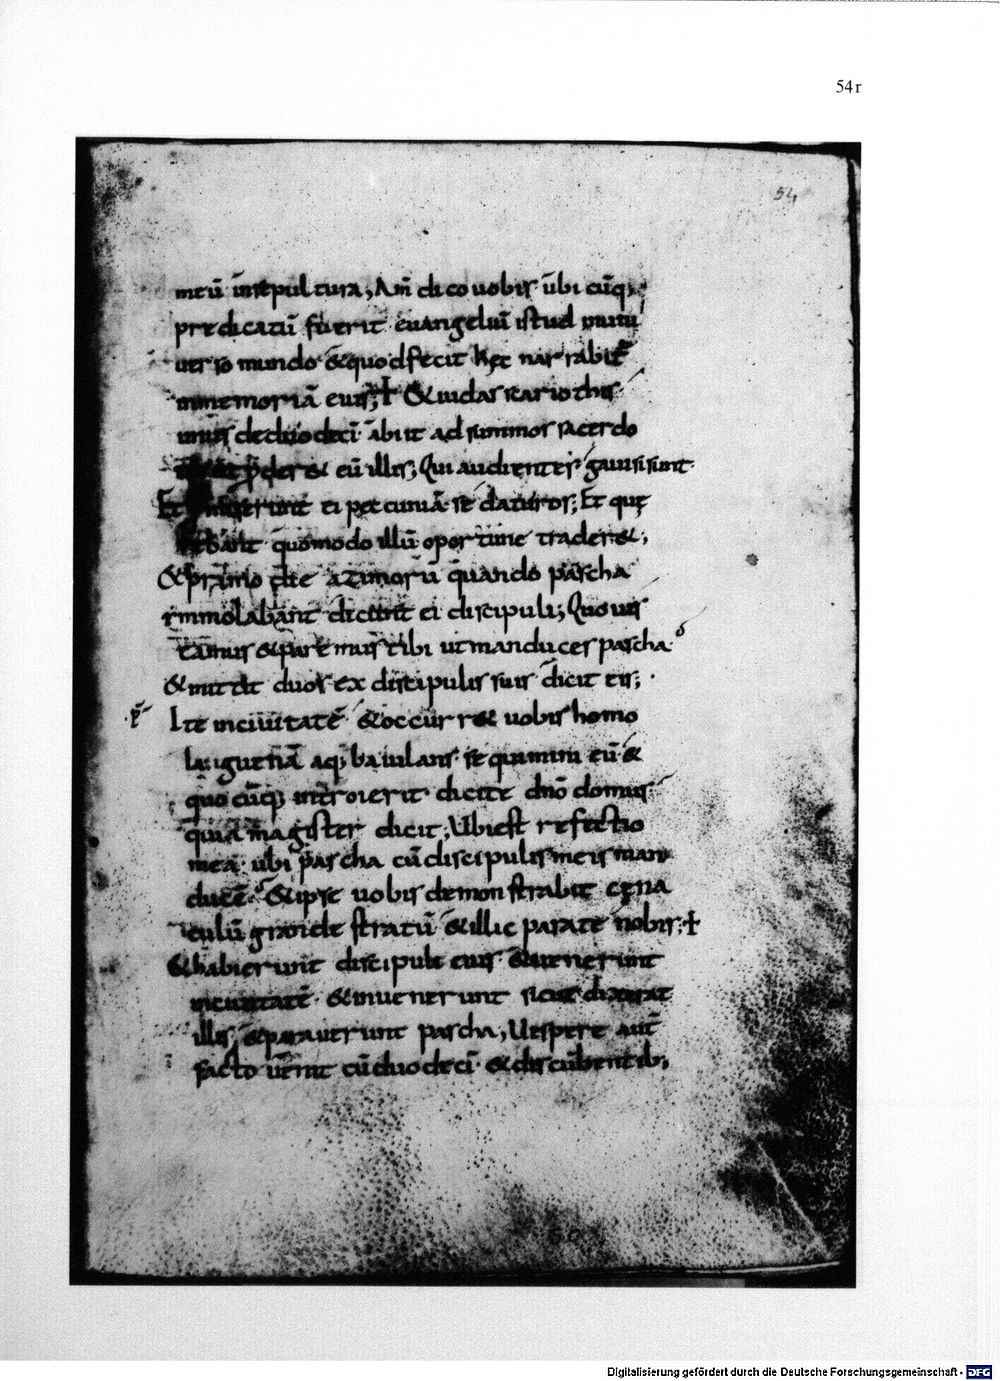 54r
54
meū insepultura; Am̄ dico uobis ubi cūq;
predicatū fuerit euangeliū istud inuni
uerso mundo &quod fecit hęc narrabit̄
inmemoriā eius; † &iudas scariothis
unus deduodecī abiit ad summos sacerdo
p̄der& eū illis; Qui audientes gauisi sunt
Et ei peccuniā se daturos; Et quę
quomodo illū oportune trader&;
&primo die azimorū quando pascha
immolabant dicunt ei discipuli; Quo uis
eamus &paremus tibi ut manduces pascha
&mittit duos ex discipulis suis dicit eis;
Ite inciuitatē &occurr& uobis homo
laguenā aq; baiulans sequimini eū &
quo cūq; introierit dicite dn̄o domus
quia magister dicit; Ubi est refectio
mea ubi pascha cū discipulis meis man
ducē &ipse uobis demonstrabit cęna
culū grande stratū &illic parate nobis; †
&habierunt discipuli eius &uenerunt
inciuitatē &inuenerunt sicut dixerat
illis &parauerunt pascha; Uespere aut̄
facto uenit cū duodecī &discūbentib;
Digitalisierung gefördert durch die Deutsche Forschungsgemeinschaft - DFG